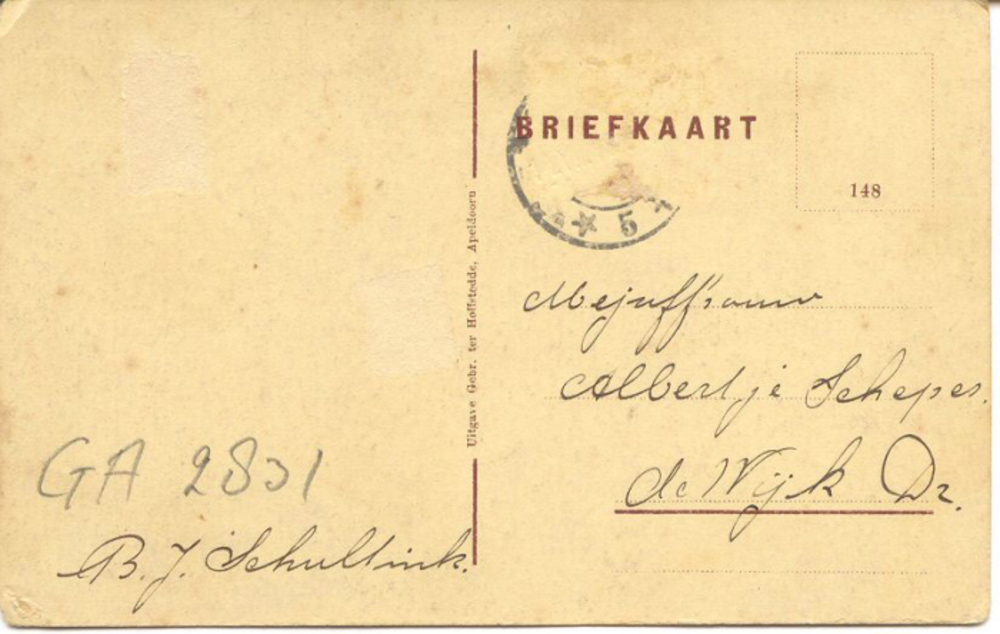 BRIEFKAART
148
5
Uitgave Gebr. ter Hoffstedde, Apeldoorn
Mejuffrouw
Albertje Schepes.
de Wijk Dr.
GA 2831
B. J. Schultink.